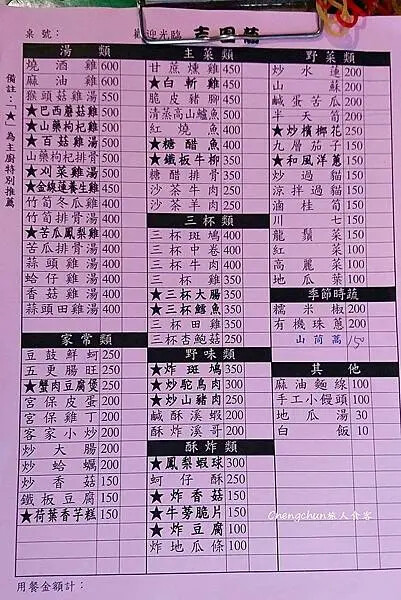 桌號：
歡迎光臨
備註：「★」為主廚特別推薦
湯類
燒酒雞 600
麻油雞 600
猴頭菇雞湯 550
★巴西蘑菇雞 500
★山藥枸杞雞 500
★百菇雞湯 500
山藥枸杞排骨 500
★刈菜雞湯 450
★金線蓮養生雞 450
竹筍冬瓜雞 400
竹筍排骨湯 400
★苦瓜鳳梨雞 400
苦瓜排骨湯 400
蒜頭雞湯 400
蛤仔雞湯 400
香菇雞湯 400
蒜頭田雞湯 400
家常類
豆鼓鮮蚵 250
五更腸旺 250
★蟹肉豆腐煲 250
宮保皮蛋 200
宮保雞丁 200
客家小炒 200
炒大腸 200
炒蛤蠣 200
炒香菇 150
鐵板豆腐 150
★荷葉香芋糕 150
主菜類
甘蔗燻雞 450
★白斬雞 450
脆皮豬腳 450
清蒸高山鱸魚 500
紅燒魚 400
★糖醋魚 400
★鐵板牛柳 350
糖醋排骨 350
沙茶牛肉 250
沙茶羊肉 250
三杯類
三杯斑鳩 400
三杯中卷 400
三杯牛肉 400
三杯雞 350
★三杯大腸 350
★三杯鱈魚 350
三杯田雞 350
三杯杏鮑菇 250
野味類
★炸斑鳩 350
★炒鴕鳥肉 300
★炒山豬肉 250
鹹酥溪蝦 200
酥炸溪哥 200
酥炸類
★鳳梨蝦球 300
蚵仔酥 250
★炸香菇 150
★牛蒡脆片 150
★炸豆腐 100
炸地瓜條 100
野菜類
炒水蓮 200
山蘇 200
鹹蛋苦瓜 200
半天筍 200
★炒檳榔花 250
九層茄子 150
★和風洋蔥 150
炒過貓 150
涼拌過貓 150
滷桂筍 150
川七 150
龍鬚菜 150
紅菜 100
高麗菜 100
地瓜葉 100
季節時蔬
糯米椒 200
有機珠蔥 200
山茼萵 150
其他
麻油麵線 100
手工小饅頭 100
地瓜湯 30
白飯 10
Chengchun旅人食客
用餐金額計：